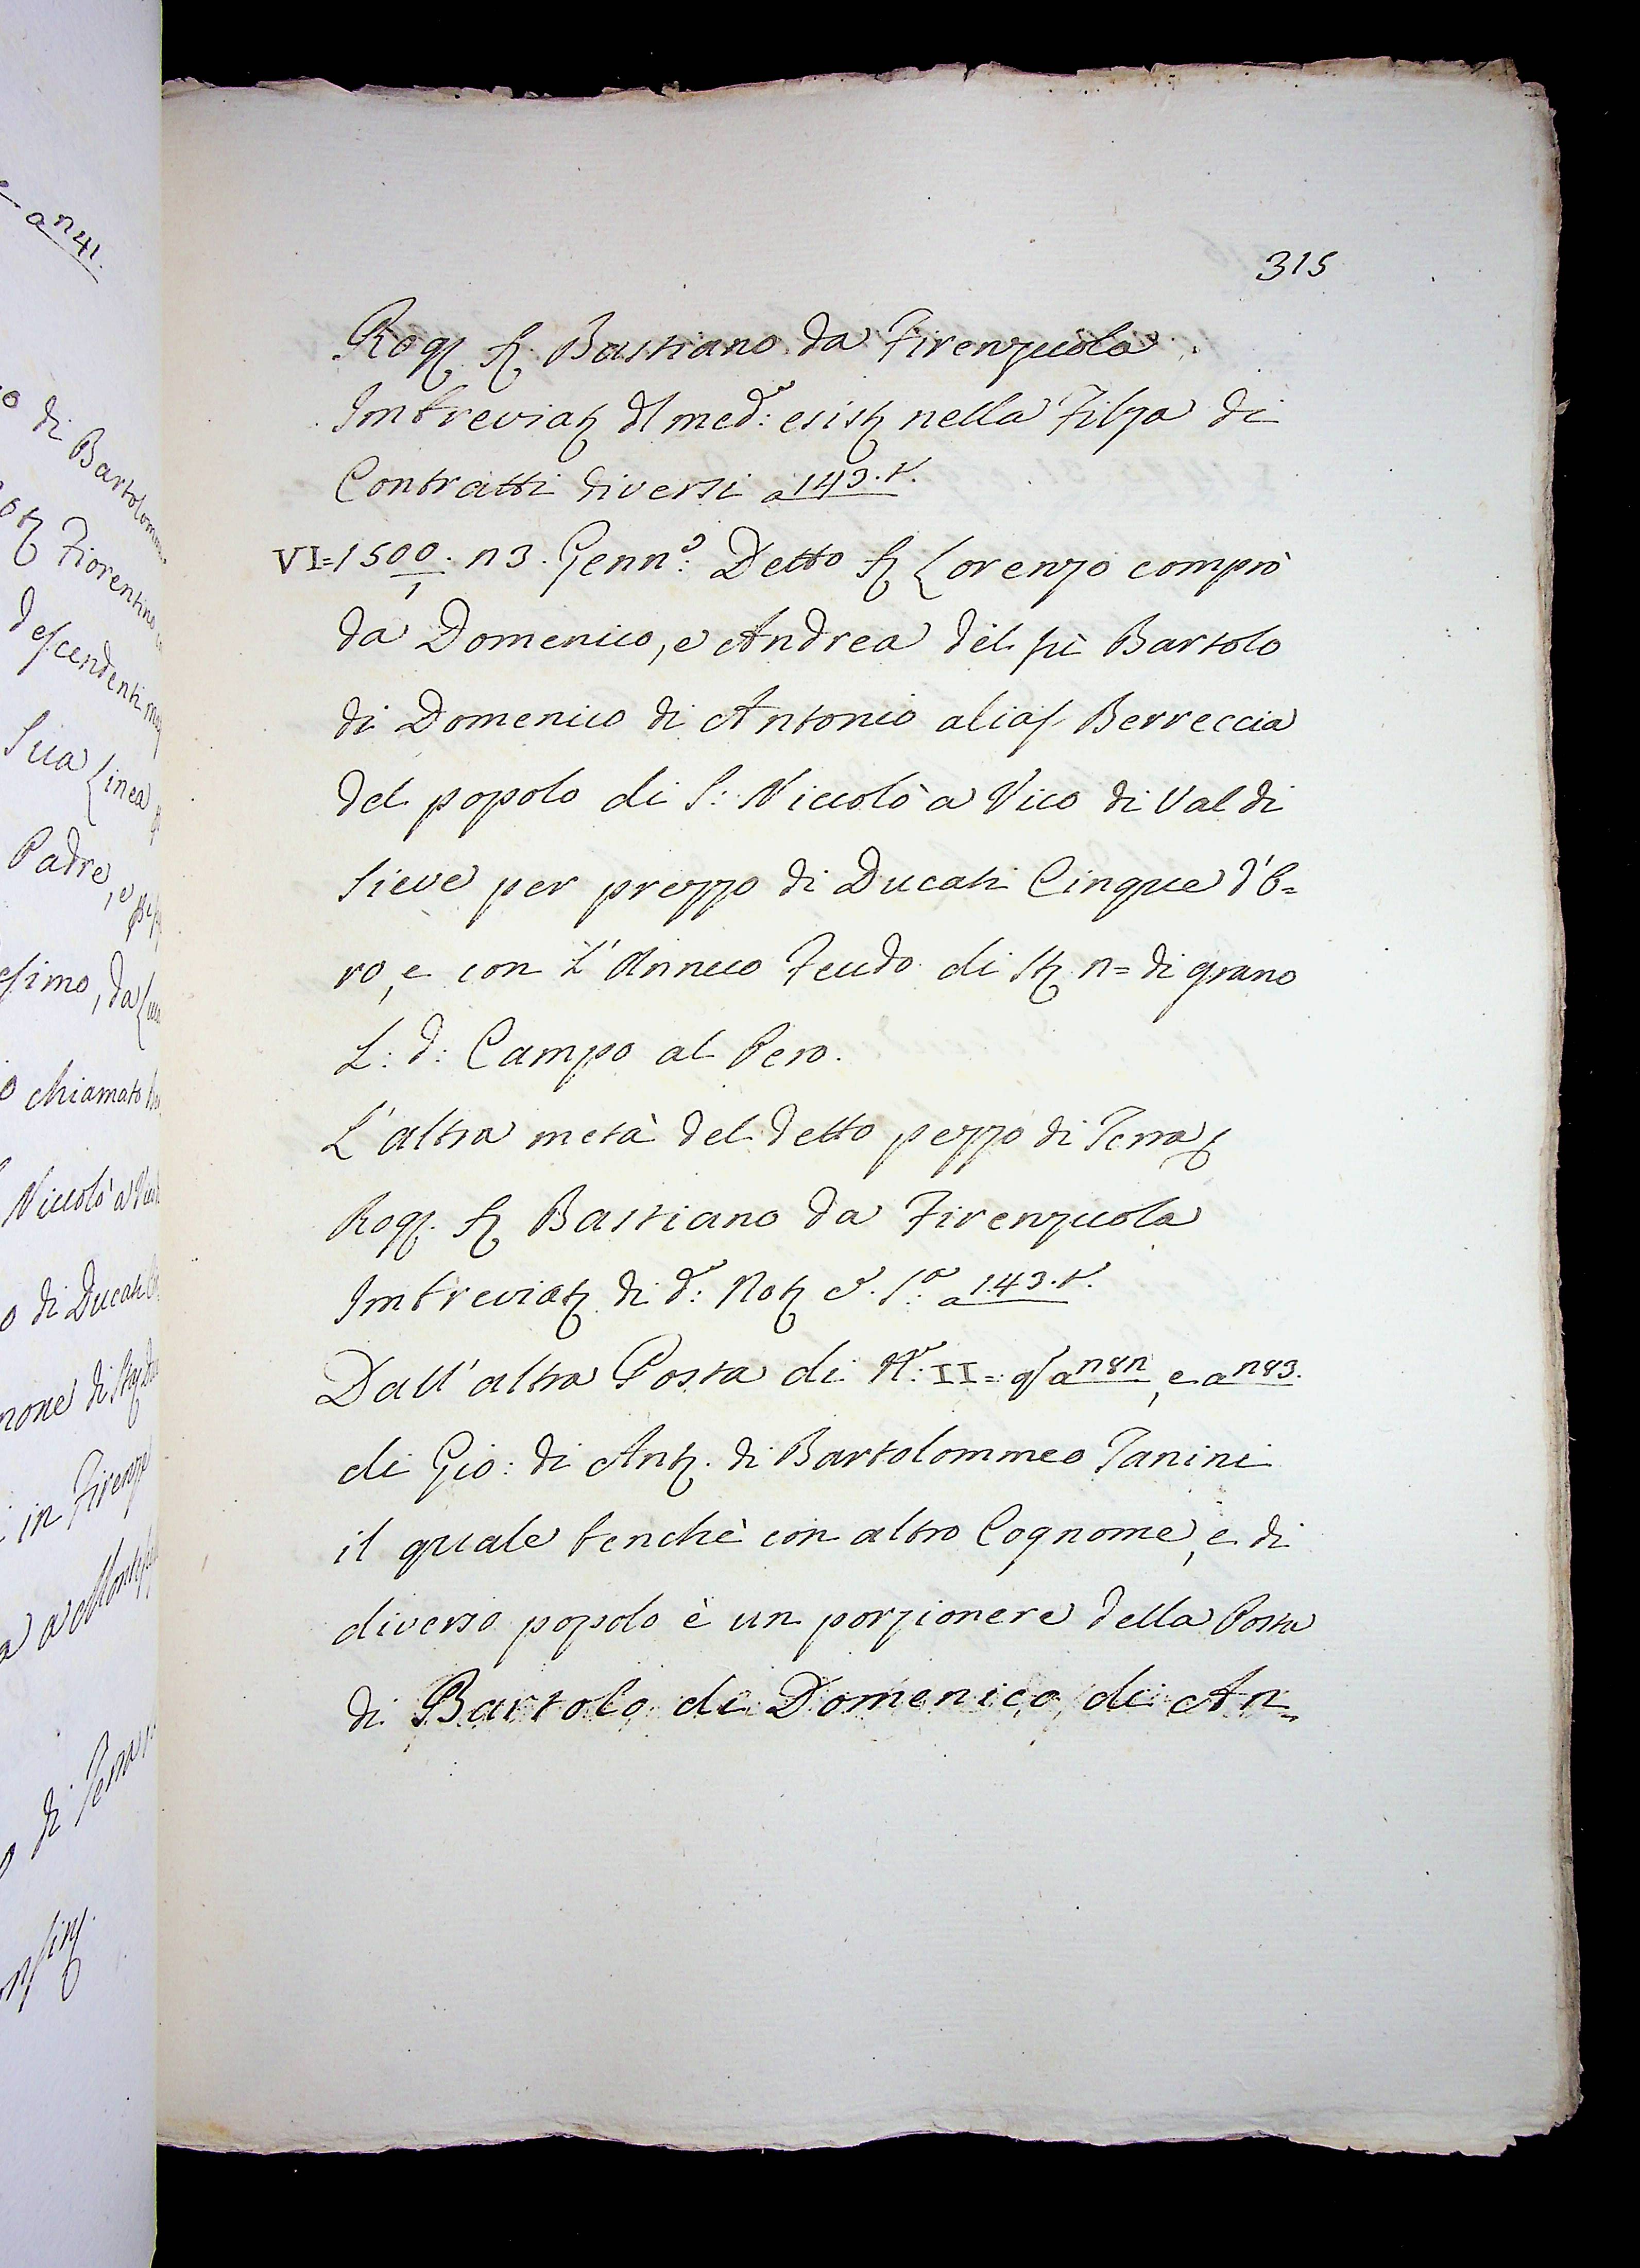 315
Rog. S. Bastiano da Firenzuola
Imbreviat. dl med.º: esist. nella Filza di
Contratti diversi a 143.t.
VI=1500/1. n3. Genn.º: Detto S. Lorenzo comprò
da Domenico, e Andrea del fù Bartolo
di Domenico di Antonio alias Berreccia
del popolo di S: Niccolò a Vico di Val di
Sieve per prezzo di Ducati Cinque d'O=
ro, e con L'Annuo Feudo di St. n= di grano
L: d: Campo al Pero.
L'altra metà del detto pezzo di Terra
Rog. S. Bastiano da Firenzuola
Imbreviat. di d.º: Not. e. S.ª: a 143.t.
Dall'altra Posta di N.º: II= a n8n, e a n83.
di Gio: di Ant. di Bartolommeo Tanini
il quale benchè con altro Cognome, e di
diverso popolo è un porzionere della Posta
di Bartolo di Domenico di An=
a n41.
di Bartolommeo
Fiorentino
descendenti
Sua Linea
Padre, e
esimo, da
chiamato
Niccolò a
di Ducati
in Firenze
di Terra